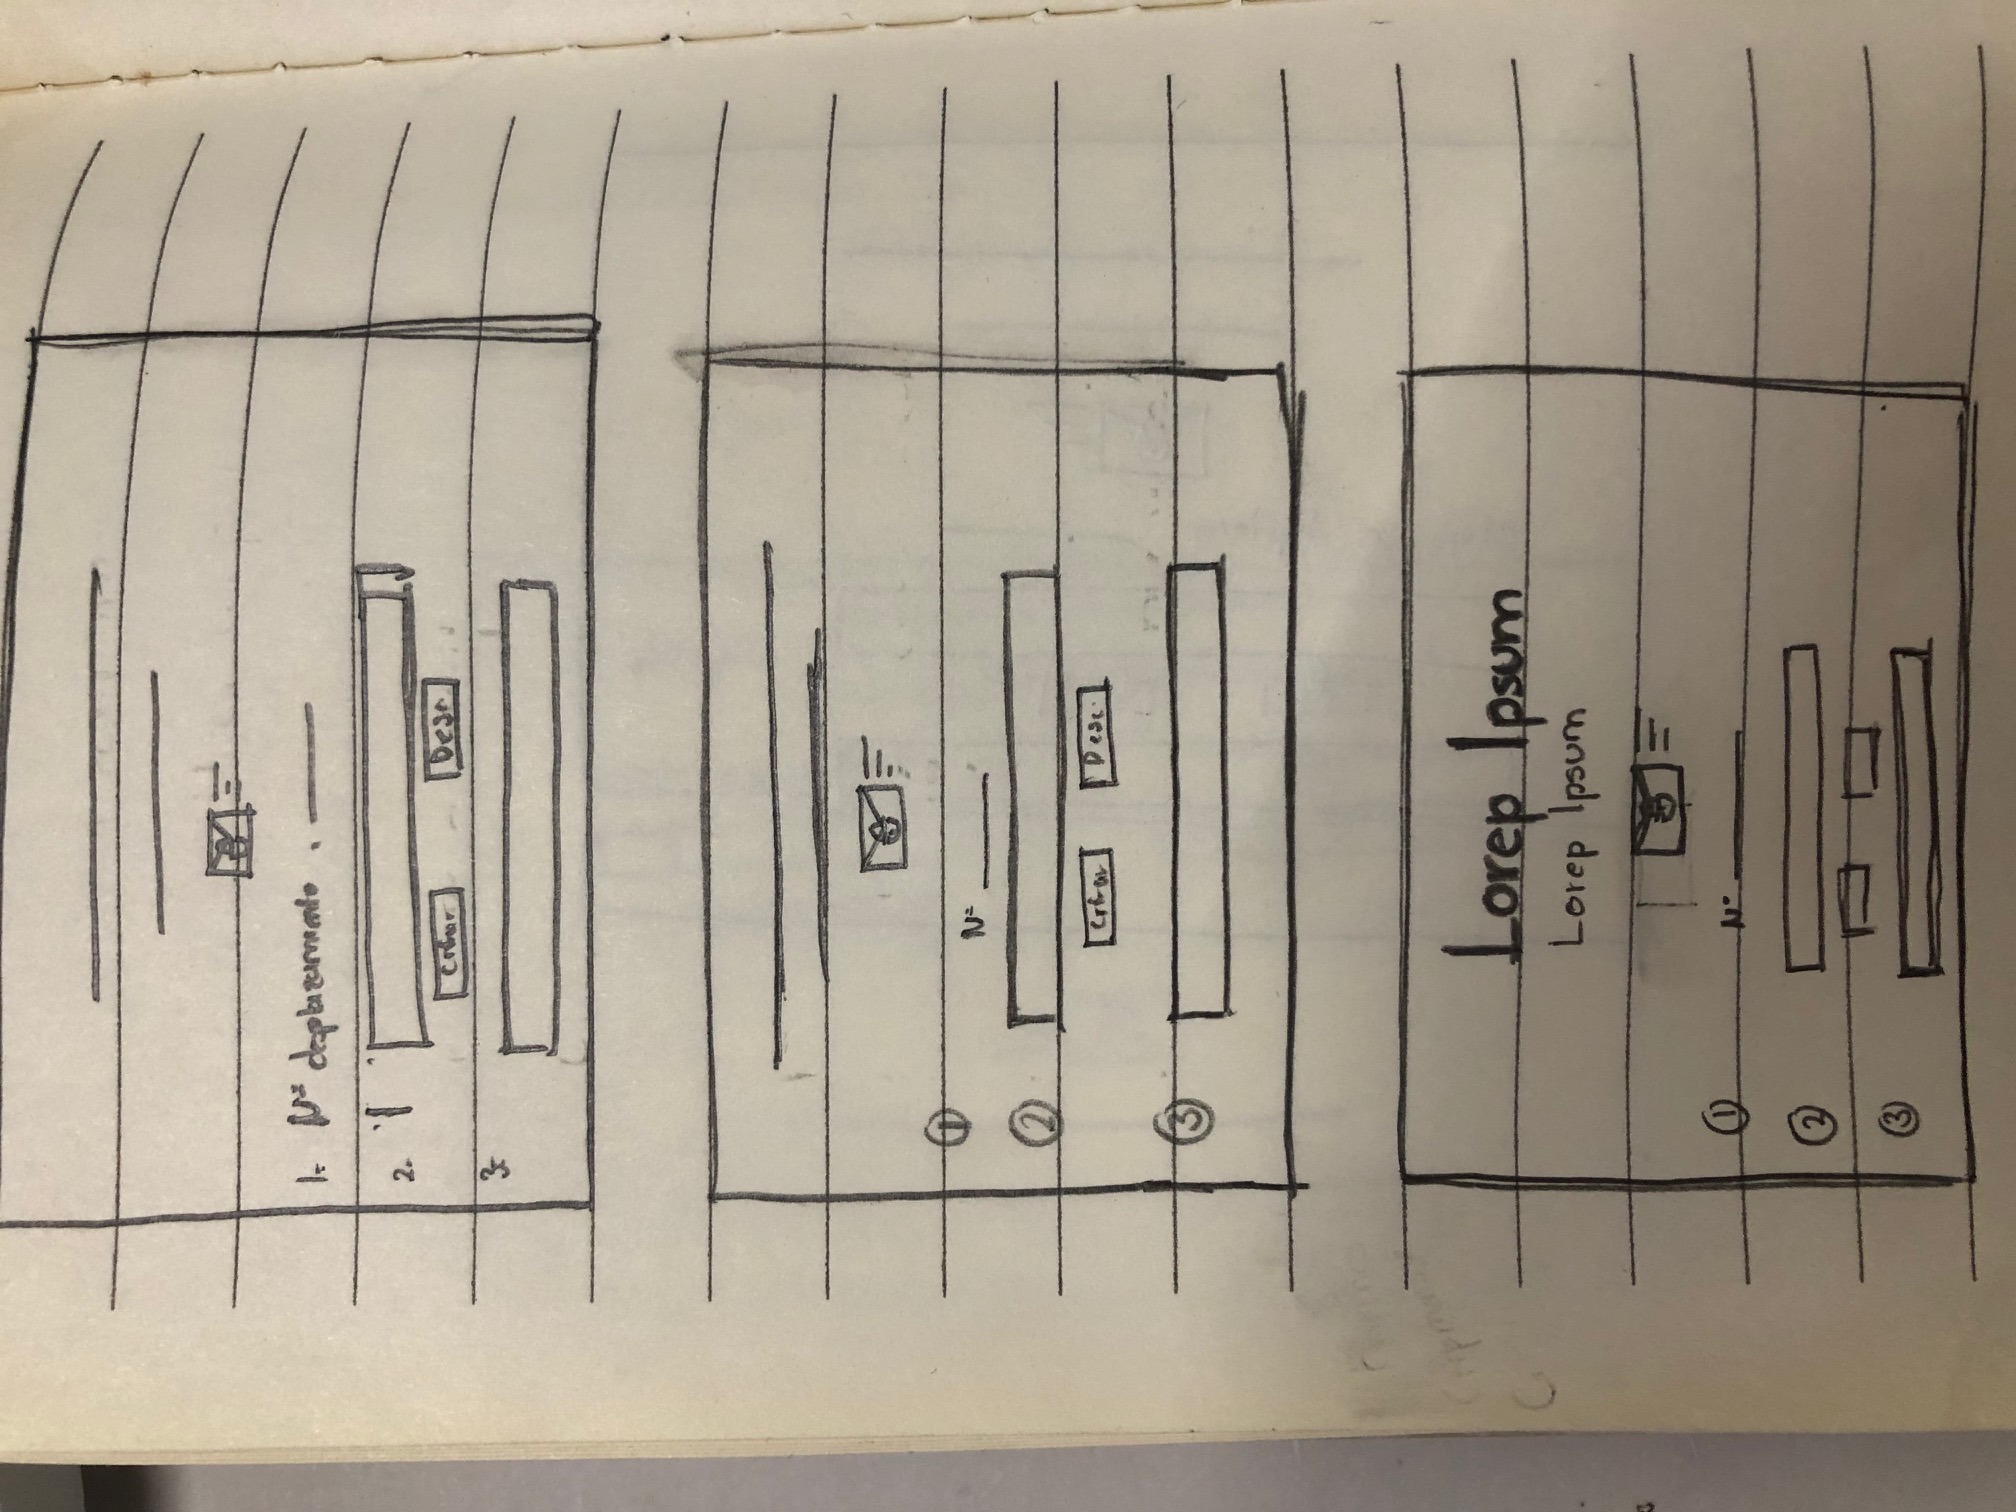 1. Nº desplazamiento .
2.
Cifrar Desc.
3.
①
Nº
②
Cifrar Desc.
③
Lorep Ipsum
Lorep Ipsum
①
Nº
②
③